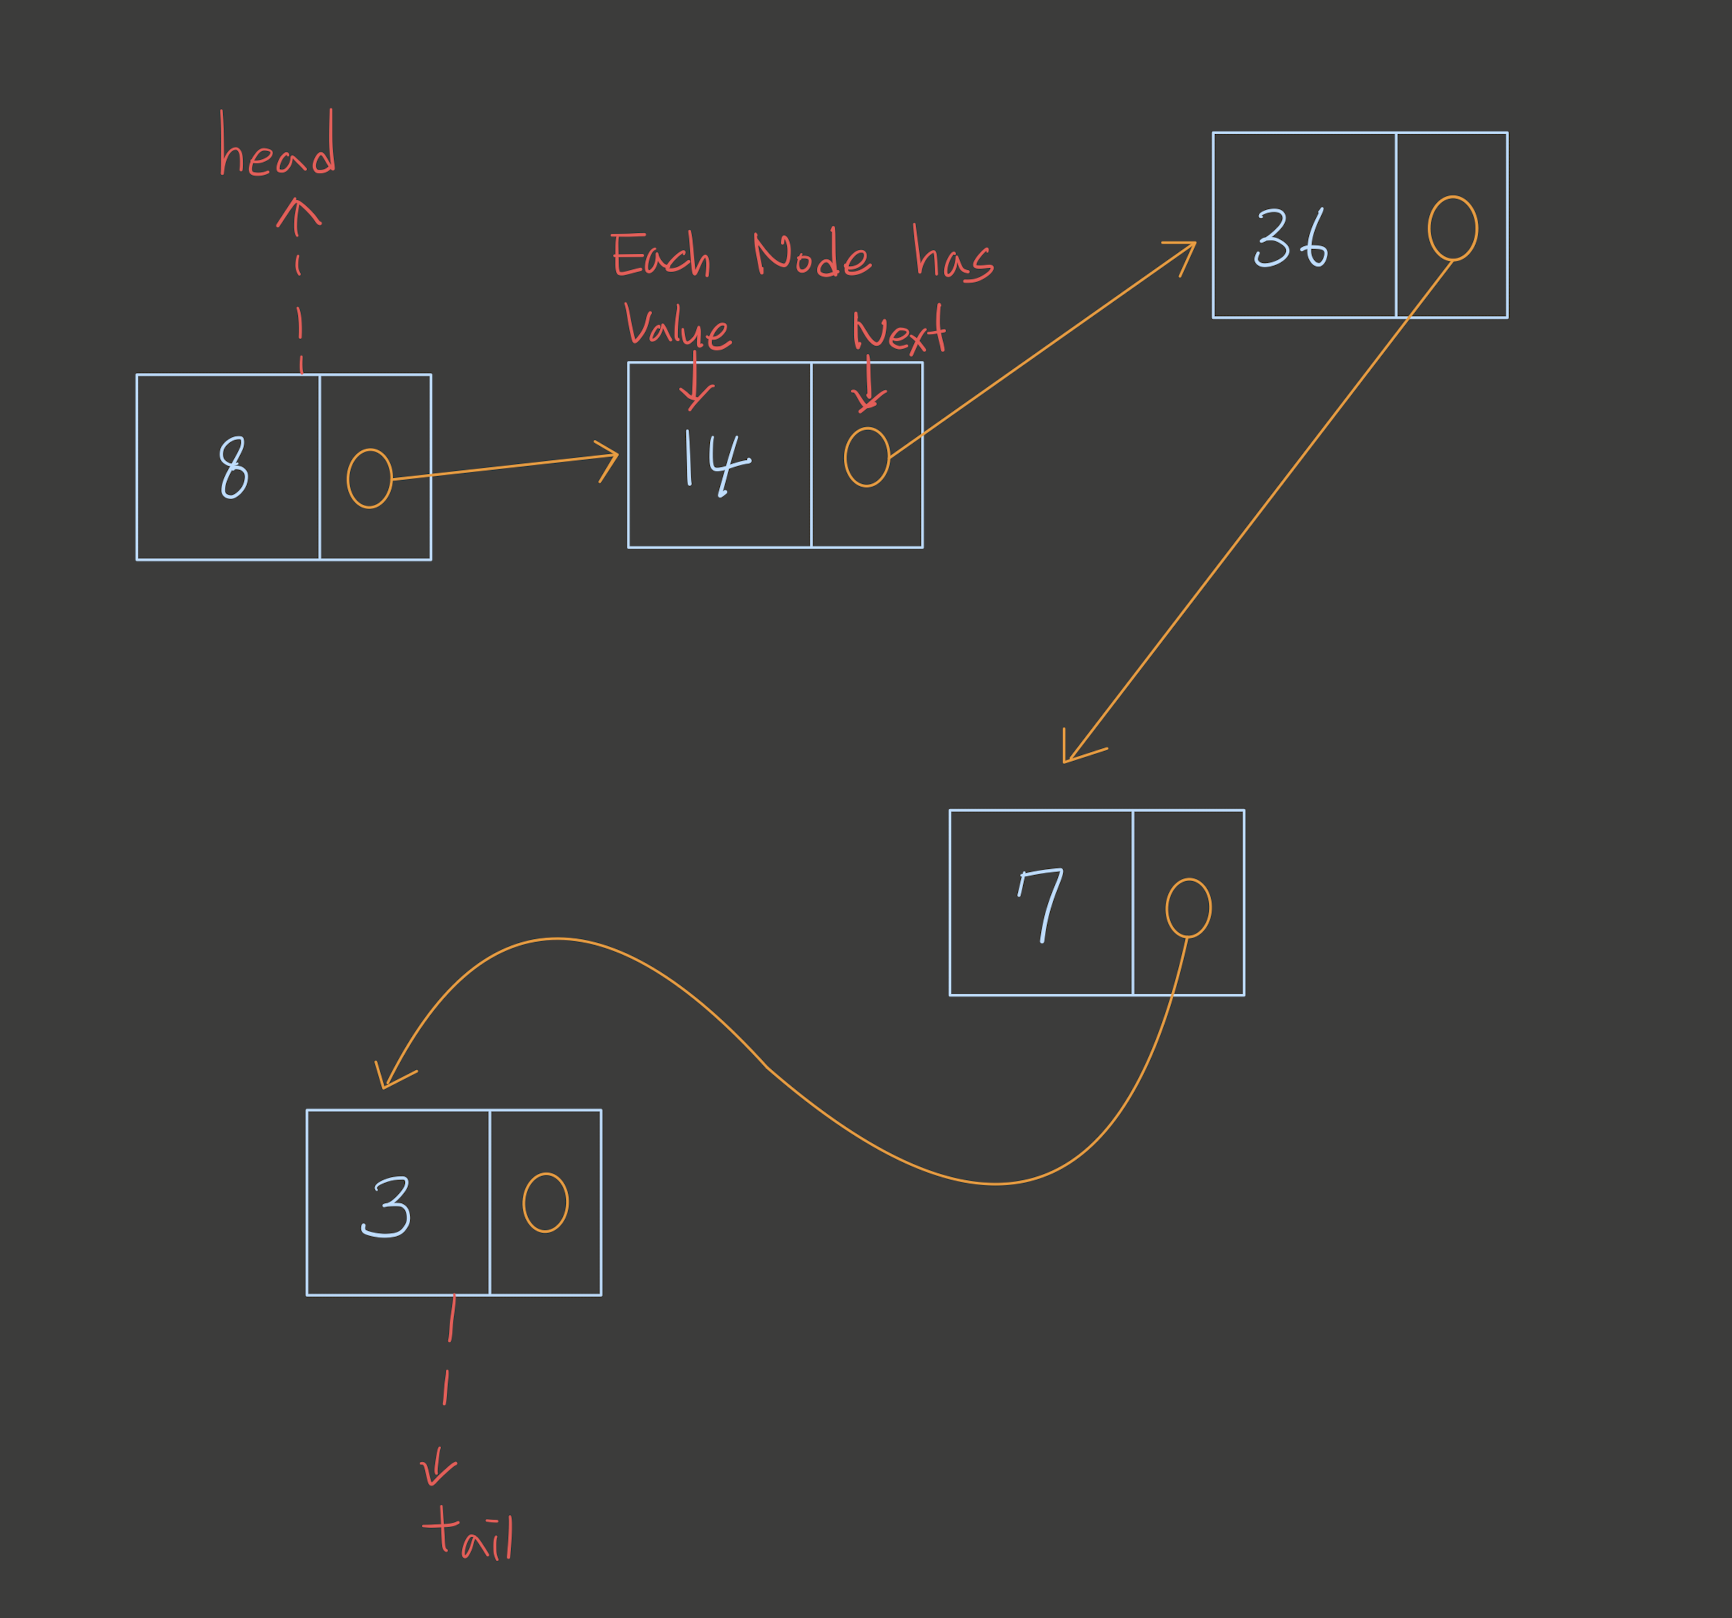 head
Each Node has
Value Next
36
8
14
7
3
tail